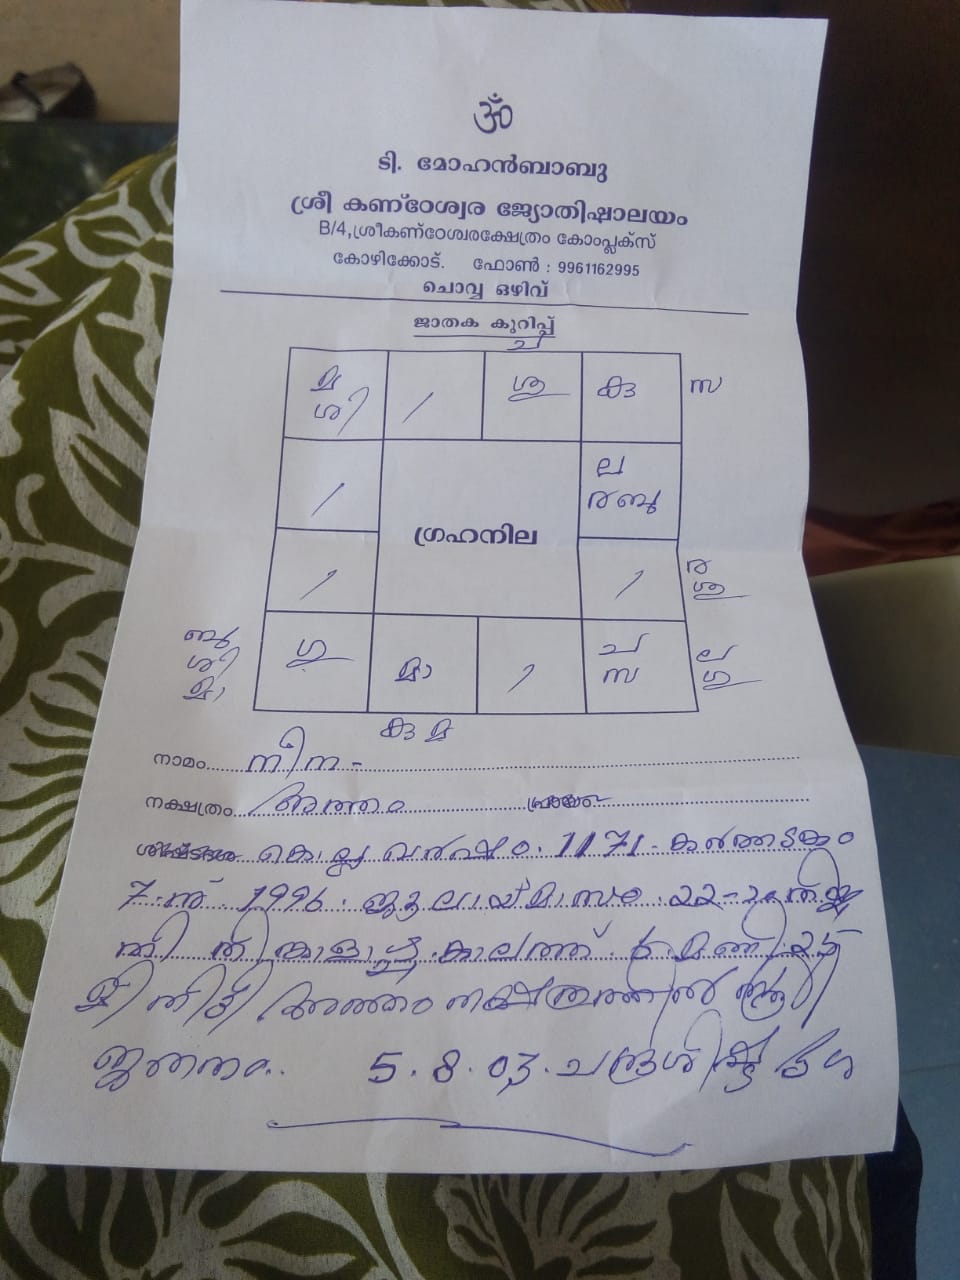 ॐ
ടി. മോഹൻബാബു
ശ്രീ കണ്ഠേശ്വര ജ്യോതിഷാലയം
B/4,ശ്രീകണ്ഠേശ്വരക്ഷേത്രം കോംപ്ലക്സ്
കോഴിക്കോട്. ഫോൺ : 9961162995
ചൊവ്വ ഒഴിവ്
ജാതക കുറിപ്പ്
ച
മ ശു കു സ
ശി
ല
ര ബു
ഗ്രഹനില
ര
ശു
ബു ഗു മാ ച ല
ശി സ ഗു
മാ
കു മ
നാമം നീന -
നക്ഷത്രം അത്തം
കൊല്ലവർഷം. 1171. കർക്കടകം
7-ന് 1996. ജൂലായ്മാസം 22-ാം തിയ്യ
തി കാലത്ത് 6 മണി 25
മിനിട്ടി അത്തം നക്ഷത്രത്തിൽ സ്ത്രീ
ജനനം. 5. 8. 03. ചന്ദ്രശിഷ്ട ദശ